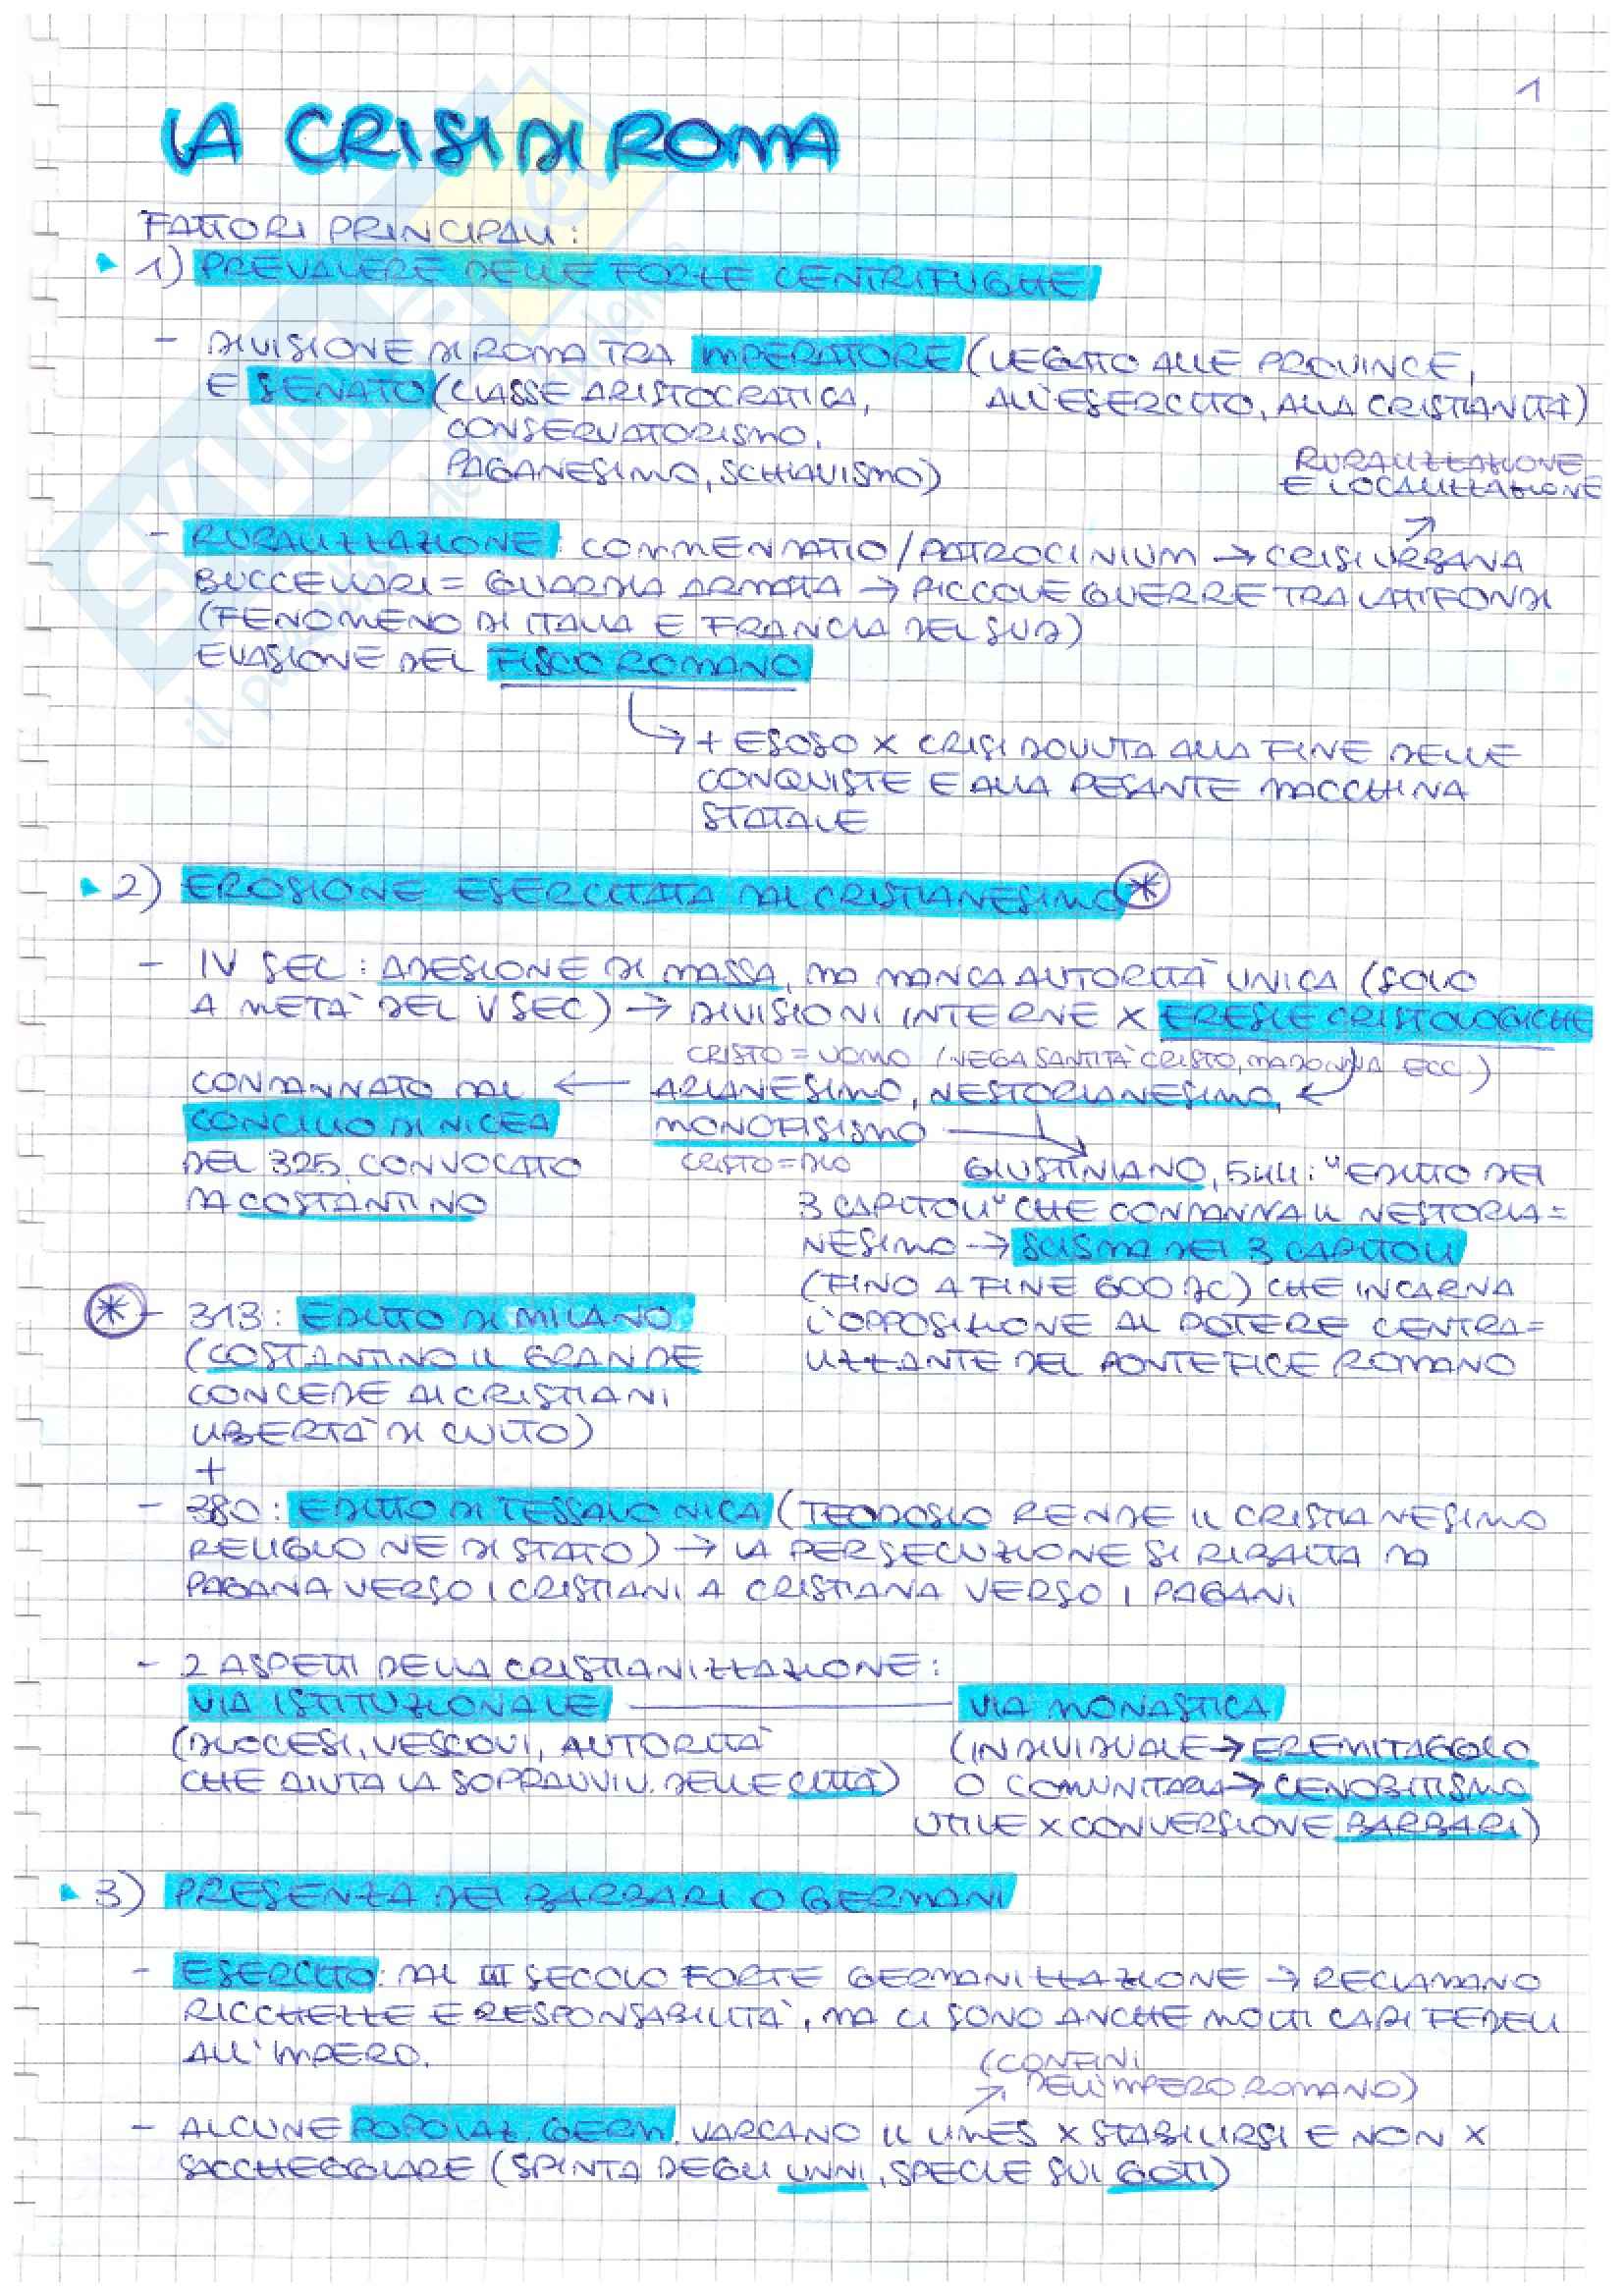 1
LA CRISI DI ROMA
FATTORI PRINCIPALI:
1) PREVALERE DELLE FORZE CENTRIFUGHE
- DIVISIONE DI ROMA TRA IMPERATORE (LEGATO ALLE PROVINCE,
ALL'ESERCITO, ALLA CRISTIANITÀ)
E SENATO (CLASSE ARISTOCRATICA,
CONSERVATORISMO,
PAGANESIMO, SCHIAVISMO)
RURALIZZAZIONE
E LOCALIZZAZIONE
- RURALIZZAZIONE: COMMENDATIO/PATROCINIUM → CRISI URBANA
BUCCELLARI = GUARDIA ARMATA → PICCOLE GUERRE TRA LATIFONDI
(FENOMENO DI ITALIA E FRANCIA DEL SUD)
EVASIONE DEL FISCO ROMANO
+ ESOSO X CRISI DOVUTA ALLA FINE DELLE
CONQUISTE E ALLA PESANTE MACCHINA
STATALE
2) EROSIONE ESERCITATA DAL CRISTIANESIMO *
- IV SEC: ADESIONE DI MASSA, MA MANCA AUTORITÀ UNICA (SOLO
A METÀ DEL V SEC) → DIVISIONI INTERNE X ERESIE CRISTOLOGICHE
CRISTO = UOMO (NEGA SANTITÀ CRISTO, MADONNA ECC.)
CONDANNATO DAL ← ARIANESIMO, NESTORIANESIMO,
CONCILIO DI NICEA
MONOFISISMO →
DEL 325 CONVOCATO
DA COSTANTINO
CRISTO = DIO
GIUSTINIANO, 544: "EDITTO DEI
3 CAPITOLI" CHE CONDANNA IL NESTORIA=
NESIMO → SCISMA DEI 3 CAPITOLI
(FINO A FINE 600 DC) CHE INCARNA
L'OPPOSIZIONE AL POTERE CENTRA=
LIZZANTE DEL PONTEFICE ROMANO
* - 313: EDITTO DI MILANO
(COSTANTINO IL GRANDE
CONCEDE AI CRISTIANI
LIBERTÀ DI CULTO)
+
- 380: EDITTO DI TESSALONICA (TEODOSIO RENDE IL CRISTIANESIMO
RELIGIONE DI STATO) → LA PERSECUZIONE SI RIBALTA DA
PAGANA VERSO I CRISTIANI A CRISTIANA VERSO I PAGANI
- 2 ASPETTI DELLA CRISTIANIZZAZIONE:
VIA ISTITUZIONALE
(DIOCESI, VESCOVI, AUTORITÀ
CHE AIUTA LA SOPRAVVIV. DELLE CITTÀ)
VIA MONASTICA
(INDIVIDUALE → EREMITAGGIO
O COMUNITARIA → CENOBITISMO
UTILE X CONVERSIONE BARBARI)
3) PRESENZA DEI BARBARI O GERMANI
- ESERCITO: DAL III SECOLO FORTE GERMANIZZAZIONE → RECLAMANO
RICCHEZZE E RESPONSABILITÀ, MA CI SONO ANCHE MOLTI CAPI FEDELI
ALL'IMPERO.
(CONFINI
DELL'IMPERO ROMANO)
- ALCUNE POPOLAZ. GERM. VARCANO IL LIMES X STABILIRSI E NON X
SACCHEGGIARE (SPINTA DEGLI UNNI, SPECIE SUI GOTI)